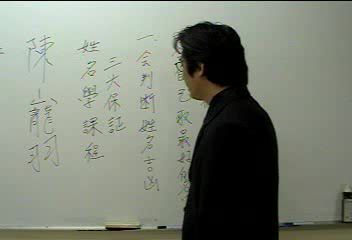 自己取最好的名
一、会判断姓名吉凶
三大保証
姓名學課程
陳龍羽